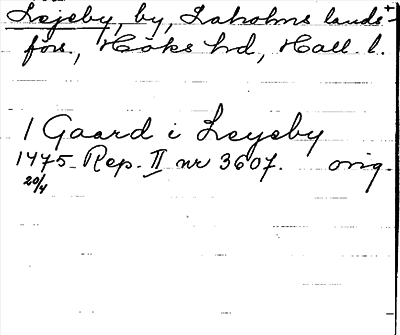 Lejeby, by, Laholms lands-
förs., Höks hd, Hall. l.
1 Gaard i Leyeby
1475 Rep. II nr 3607. orig.
20/4